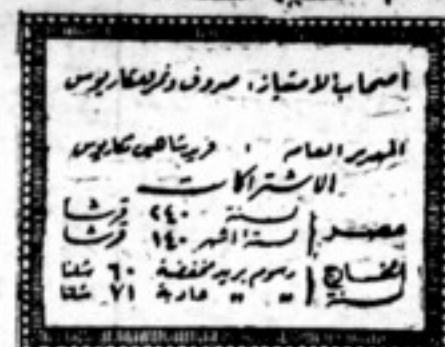 أصحاب الامتياز: صروف ونمر ومكاريوس
المدير العام : فريد شاهين مكاريوس
الاشتراكات
مصر لسنة ٢٤٠ قرشا
لستة اشهر ١٤٠ قرشا
الخارج رسوم بريد مخفضة ٦٠ شلنا
لسنة " " عادية ٧١ شلنا